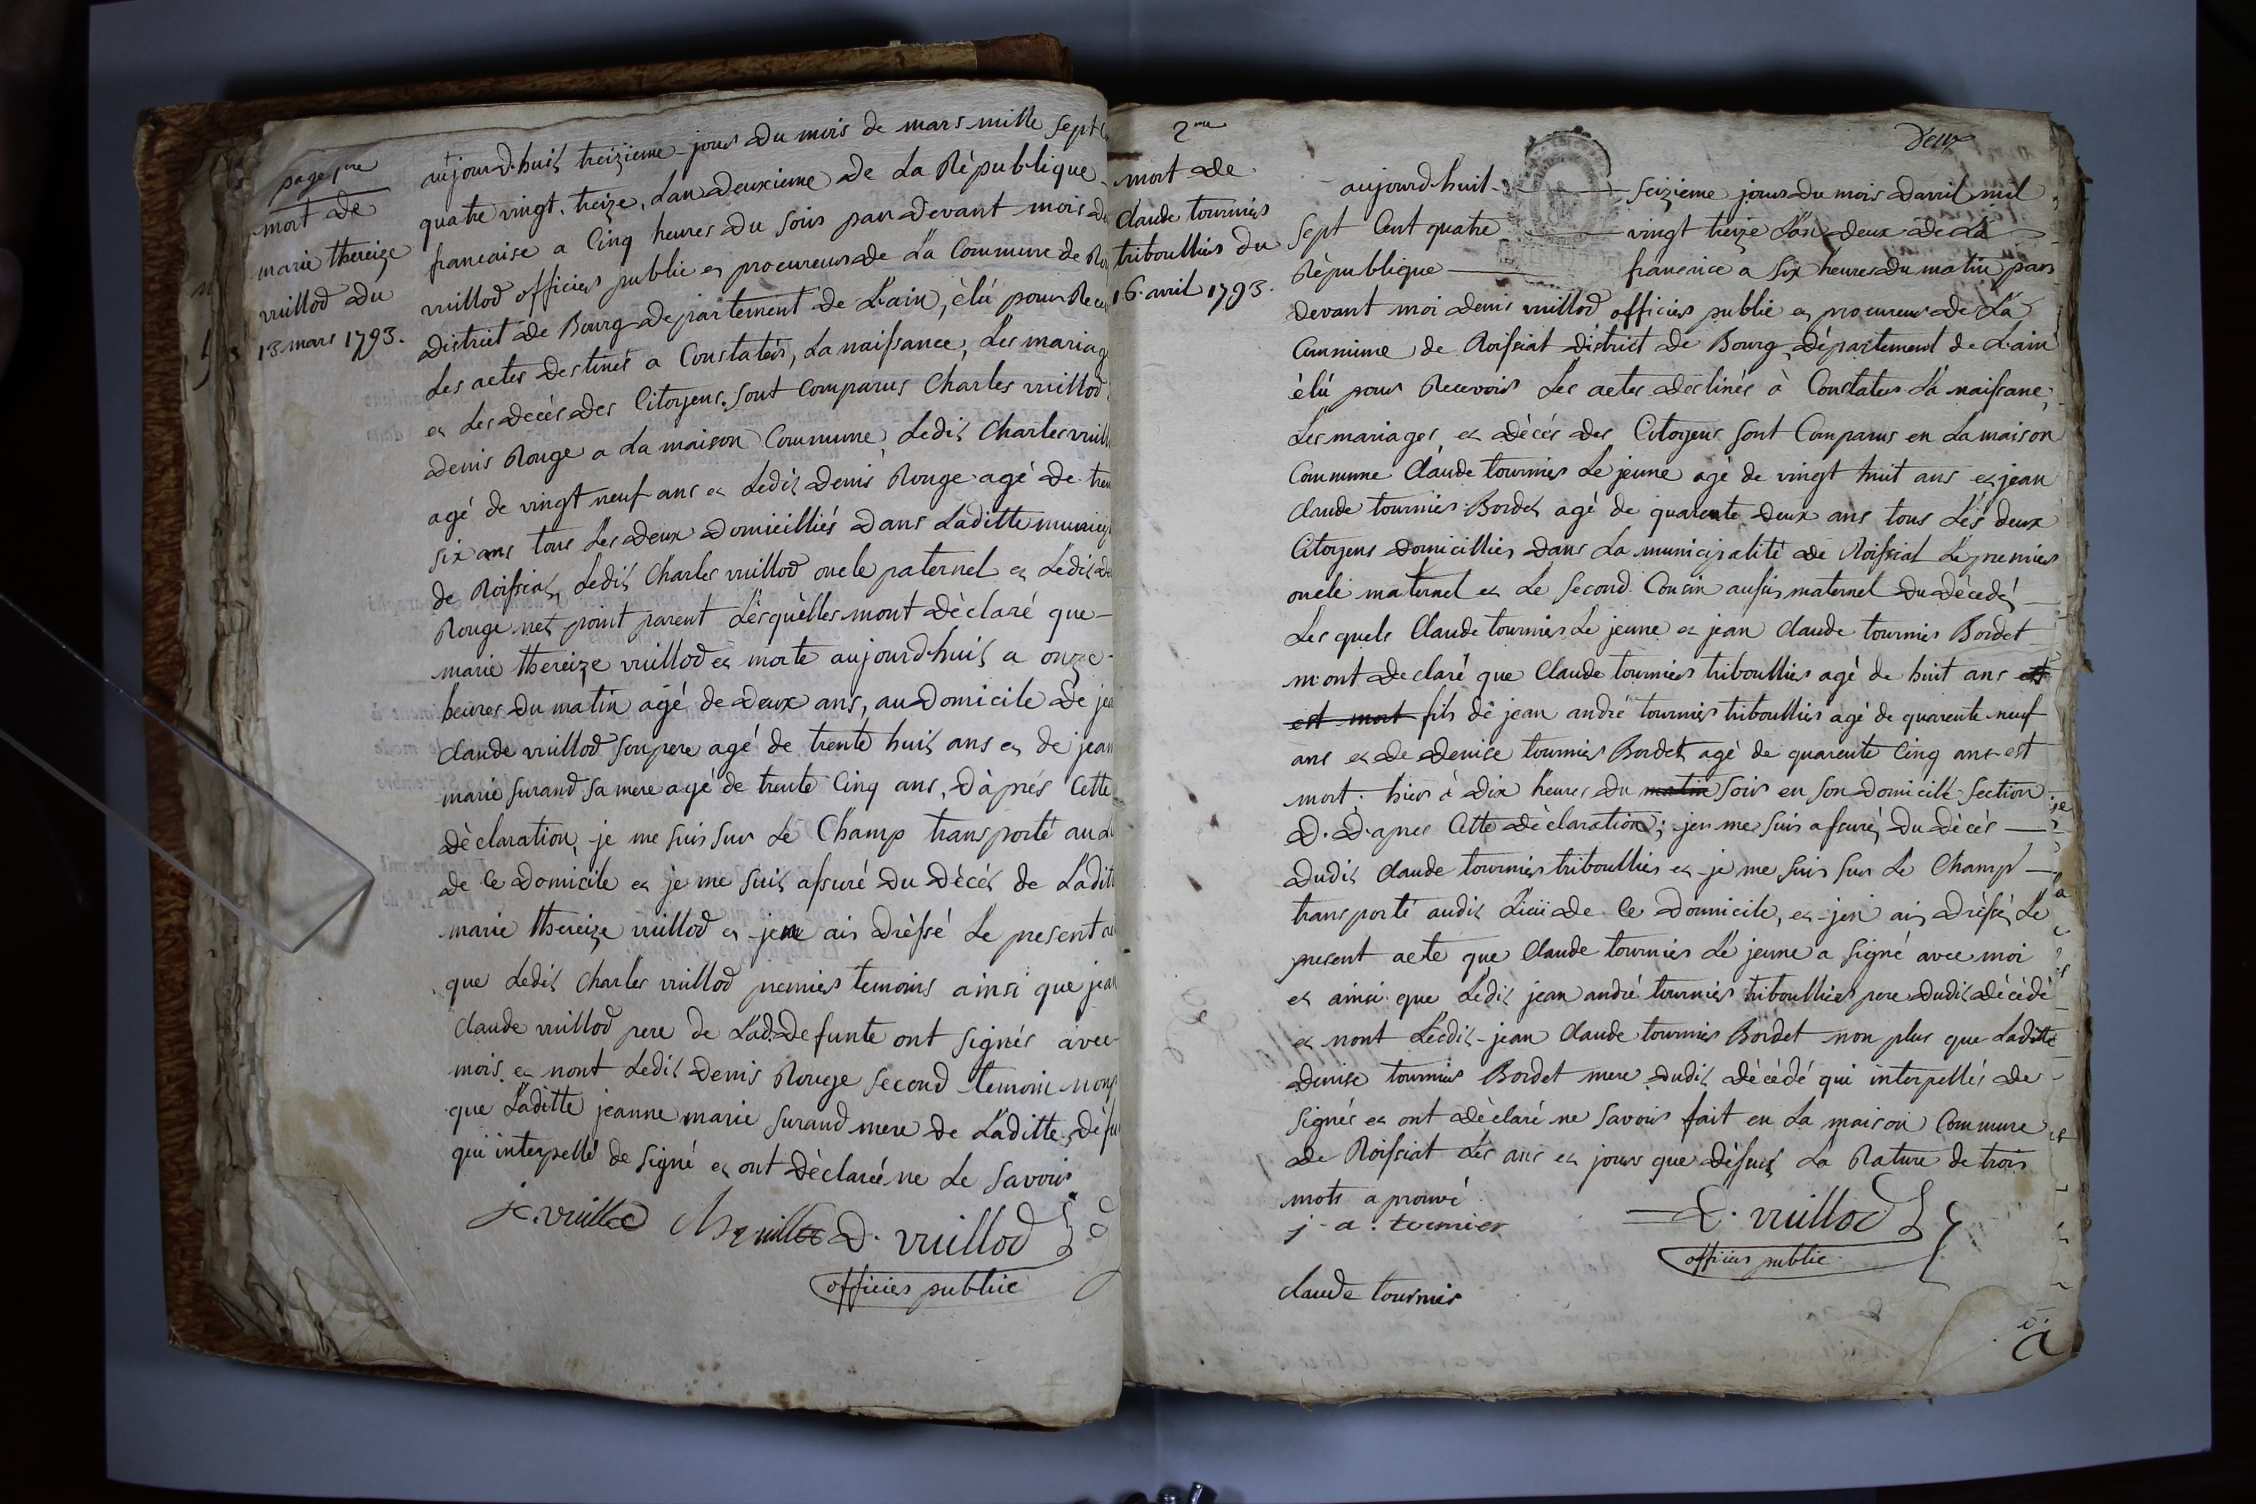 page 1re
mort de
marie thereize
vuillod du
13 mars 1793.
aujourd.huit treizieme jour du mois de mars mille sept
quatre vingt. treize, lan deuxieme de la République
francaise a cinq heures du soir par devant mois
vuillod officier public et procureur de la Commune de
district de Bourg departement de L'ain, élu pour
Les actes destinés a Constater, La naissance, Les
et Les décès des Citoyens. Sont comparus Charles vuillod
denis Rouge a La maison Commune Ledit Charles
agé de vingt neuf ans et Ledit denis Rouge agé de
six ans tous Les deux domicilliés dans Laditte
de Roissiat, Ledit Charles vuillod oncle paternel et Ledit
Rouge net point parent Lesquelles mont déclaré que
marie thereize vuillod et morte aujourdhuit a onze
heures du matin agé de deux ans, au domicile de
Claude vuillod son pere agé de trente huit ans et de jean
marie Surand sa mere agé de trente Cinq ans, d'aprés Cette
déclaration, je me suis sur Le Champ transporté au
de Ce domicile et je me suis assuré du décés de
marie thereize vuillod et jen ais dréssé Le present
que Ledit Charles vuillod premier temoins ainsi que
Claude vuillod pere de Lad. defunte ont signés avec
mois et nont Ledit denis Rouge second temoin
que Laditte jeanne marie Surand mere de Laditte
qui interpellé de signé et ont déclaré ne Le savoir
D. vuillod
officier public
2me
mort de
Claude tournier
triboullier du
16. avril 1793.
Deux
aujourd'huit seizieme jour du mois davril mil
Sept Cent quatre vingt treize L'an deux de La
République francaice a six heures du matin par
devant moi denis vuillod officier public et procureur de La
Commune de Roissiat district de Bourg, département de L'ain
élu pour Recevoir Les actes destinés à Constater La naissance,
Les mariages et décés des Citoyens sont Comparus en La maison
Commune Claude tournier Le jeune agé de vingt huit ans et jean
Claude tournier Bordet agé de quarente deux ans tous Les deux
Citoyens domicilliés dans La municipalité de Roissiat Le premier
oncle maternel et Le second Cousin aussi maternel du décedé
Les quels Claude tournier Le jeune et jean Claude tournier Bordet
m'ont declaré que Claude tournier triboullier agé de huit ans est
est mort fils de jean andré tournier triboullier agé de quarente neuf
ans et de denise tournier Bordet agé de quarente Cinq ans est
mort. hier à dix heures du matin soir en son domicile section
D. d'apres Cette déclaration; jen me suis assuré, du décés
dudit Claude tournier triboullier et je me suis sur Le Champ
transporté audit Lieu de Ce domicile, et jen ais dréssé Le
present acte que Claude tournier Le jeune a signé avec moi
et ainsi que Ledit jean andré tournier triboullier pere dudit décédé
et nont Ledit jean Claude tournier Bordet non plus que Laditte
denise tournier Bordet mere dudit décédé qui interpellés de
signés et ont déclaré ne savoir fait en La maison Commune
de Roissiat Les ans et jours que dessus La Rature de trois
mots aprouvé
j. a. tournier
D. vuillod
officier public
claude tournier